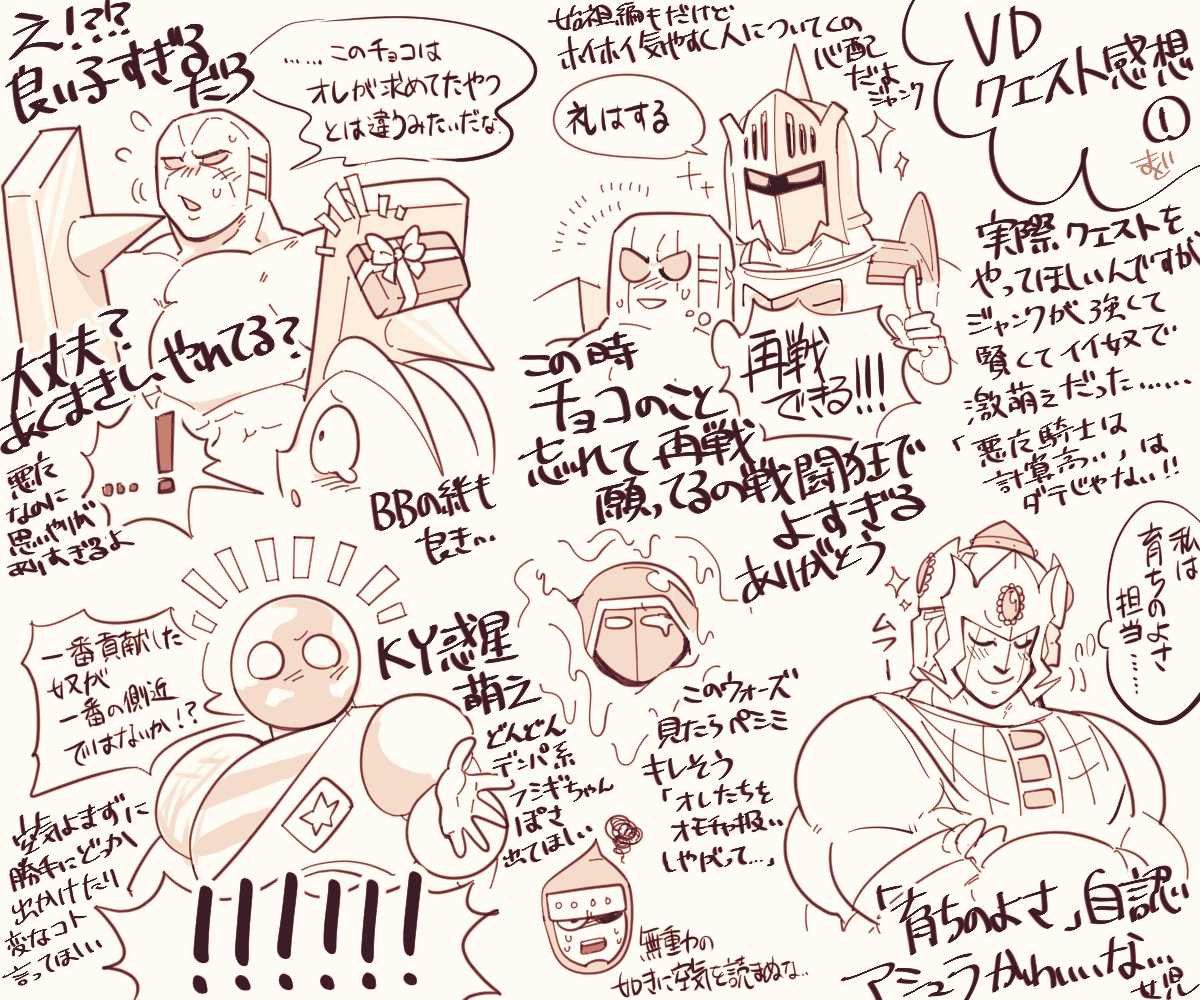 VD
クエスト感想
①
実際クエストを
やってほしいんですが
ジャンクが強くて
賢くてイイ奴で
激萌えだった……
「悪魔騎士は
計算高い」は
ダテじゃない!!
始祖編もだけど
ホイホイ気やすく人についてくの
心配
だよ
ジャンク
礼はする
再戦
できる!!!
この時
チョコのこと
忘れて再戦
願ってるの戦闘狂で
よすぎる
ありがとう
え!?!?
良い子すぎる
だろ
……このチョコは
オレが求めてたやつ
とは違うみたいだな
大丈夫?
あくまきし、やれてる?
…!
悪魔
なのに
思いやりが
ありすぎるよ
BBの絆も
良き…
私は
育ちのよさ
担当……
ムラー
「育ちのよさ」自認
アシュラかわいいな…
女児
このウォーズ
見たらペミミ
キレそう
「オレたちを
オモチャ扱い
しやがって…」
KY惑星
萌え
どんどん
デンパ系
フシギちゃん
ぽさ
出てほしい
一番貢献した
奴が
一番の側近
ではないか!?
空気よまずに
勝手にどっか
出かけたり
変なコト
言ってほしい
!!!!!!
無重力の
如きに空気を読まぬな…